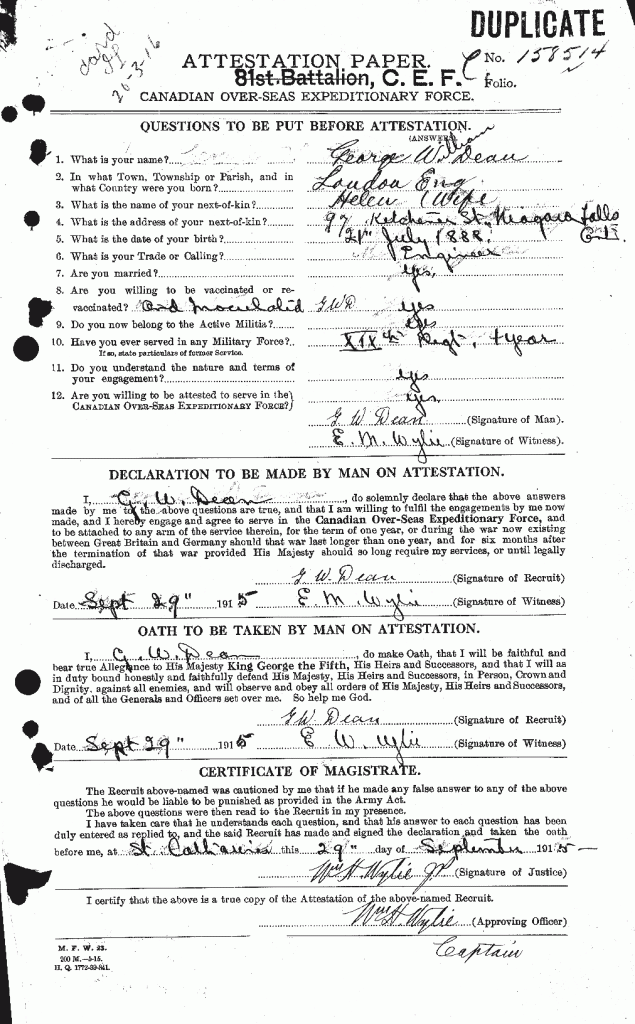 DUPLICATE
card
20-3-16
ATTESTATION PAPER.
No. 158514
81st. Battalion, C. E. F.
Folio.
CANADIAN OVER-SEAS EXPEDITIONARY FORCE.
QUESTIONS TO BE PUT BEFORE ATTESTATION.
(ANSWERS)
1. What is your name? George William Dean
2. In what Town, Township or Parish, and in
what Country were you born? London Eng
3. What is the name of your next-of-kin? Helen (Wife
4. What is the address of your next-of-kin? 97 Kitchener St, Niagara Falls
5. What is the date of your birth? 21st July 1888.
6. What is your Trade or Calling? Engineer
7. Are you married? Yes,
8. Are you willing to be vaccinated or re-
vaccinated? and Inoculatid GWD yes
9. Do you now belong to the Active Militia? yes
10. Have you ever served in any Military Force? XIXth Regt, 1 year
If so, state particulars of former Service.
11. Do you understand the nature and terms of
your engagement? yes
12. Are you willing to be attested to serve in the
CANADIAN OVER-SEAS EXPEDITIONARY FORCE? yes,
G W Dean (Signature of Man).
E. M. Wylie (Signature of Witness).
DECLARATION TO BE MADE BY MAN ON ATTESTATION.
I, G. W. Dean, do solemnly declare that the above answers
made by me to the above questions are true, and that I am willing to fulfil the engagements by me now
made, and I hereby engage and agree to serve in the Canadian Over-Seas Expeditionary Force, and
to be attached to any arm of the service therein, for the term of one year, or during the war now existing
between Great Britain and Germany should that war last longer than one year, and for six months after
the termination of that war provided His Majesty should so long require my services, or until legally
discharged.
G. W. Dean (Signature of Recruit)
Date Sept 29" 1915 E. M. Wylie (Signature of Witness)
OATH TO BE TAKEN BY MAN ON ATTESTATION.
I, G. W. Dean, do make Oath, that I will be faithful and
bear true Allegiance to His Majesty King George the Fifth, His Heirs and Successors, and that I will as
in duty bound honestly and faithfully defend His Majesty, His Heirs and Successors, in Person, Crown and
Dignity. against all enemies, and will observe and obey all orders of His Majesty, His Heirs and Successors,
and of all the Generals and Officers set over me. So help me God.
G W Dean (Signature of Recruit)
Date Sept 29" 1915 E W. Wylie (Signature of Witness)
CERTIFICATE OF MAGISTRATE.
The Recruit above-named was cautioned by me that if he made any false answer to any of the above
questions he would be liable to be punished as provided in the Army Act.
The above questions were then read to the Recruit in my presence.
I have taken care that he understands each question, and that his answer to each question has been
duly entered as replied to, and the said Recruit has made and signed the declaration and taken the oath
before me, at St. Catharines this 29" day of September 1915
Wm H. Wylie JP (Signature of Justice)
I certify that the above is a true copy of the Attestation of the above-named Recruit.
Wm H. Wylie (Approving Officer)
Captain
M. F. W. 23.
200 M.-5-15.
H. Q. 1772-39-841.